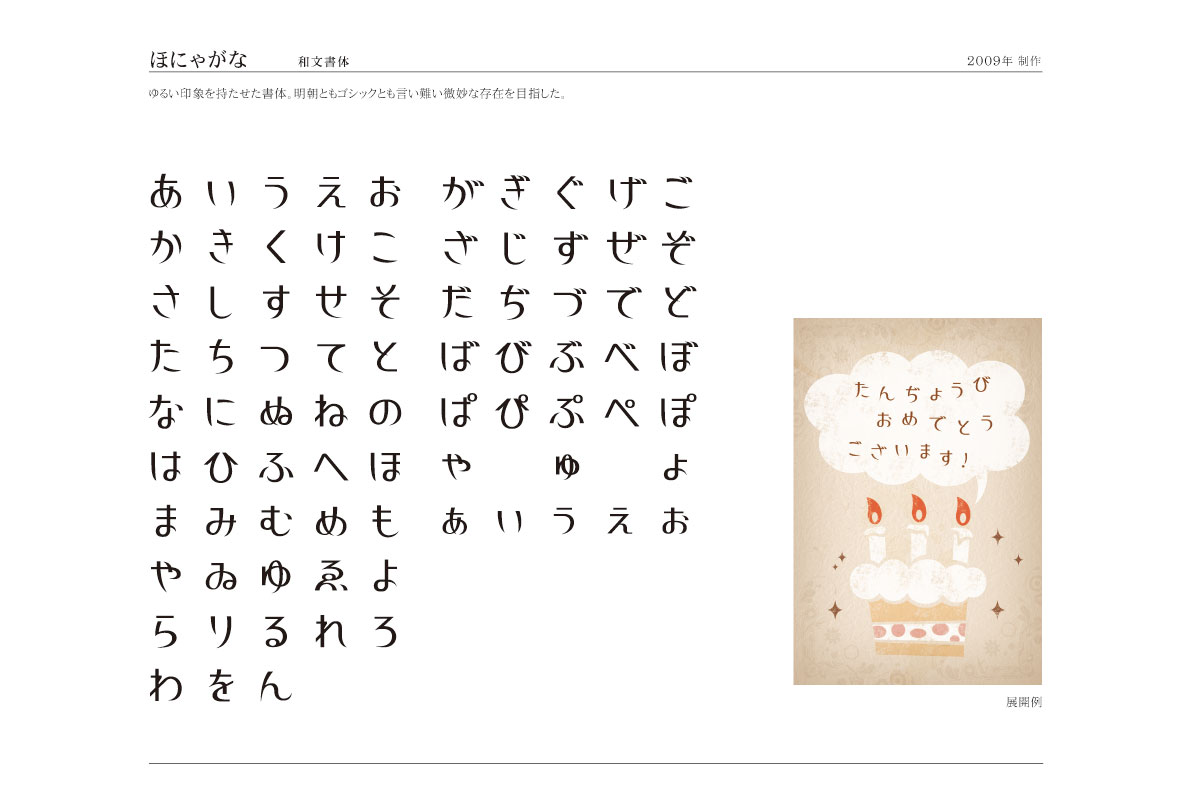 ほにゃがな 和文書体 2009年 制作
ゆるい印象を持たせた書体。明朝ともゴシックとも言い難い微妙な存在を目指した。
あいうえお がぎぐげご
かきくけこ ざじずぜぞ
さしすせそ だぢづでど
たちつてと ばびぶべぼ
なにぬねの ぱぴぷぺぽ
はひふへほ ゃ ゅ ょ
まみむめも ぁぃぅぇぉ
やゐゆゑよ
らりるれろ
わをん
たんぢょうび
おめでとう
ございます!
展開例